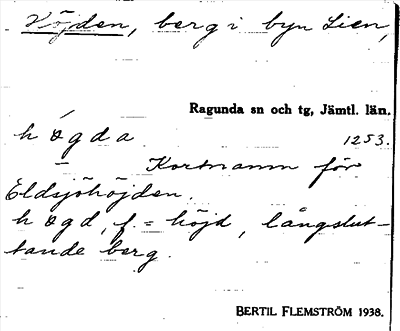 Höjden, berg i byn Lien,
Ragunda sn och tg, Jämtl. län.
högda 1253.
Kortnamn för
Eldsjöhöjden.
högd, f. = höjd, långslut-
tande berg.
BERTIL FLEMSTRÖM 1938.